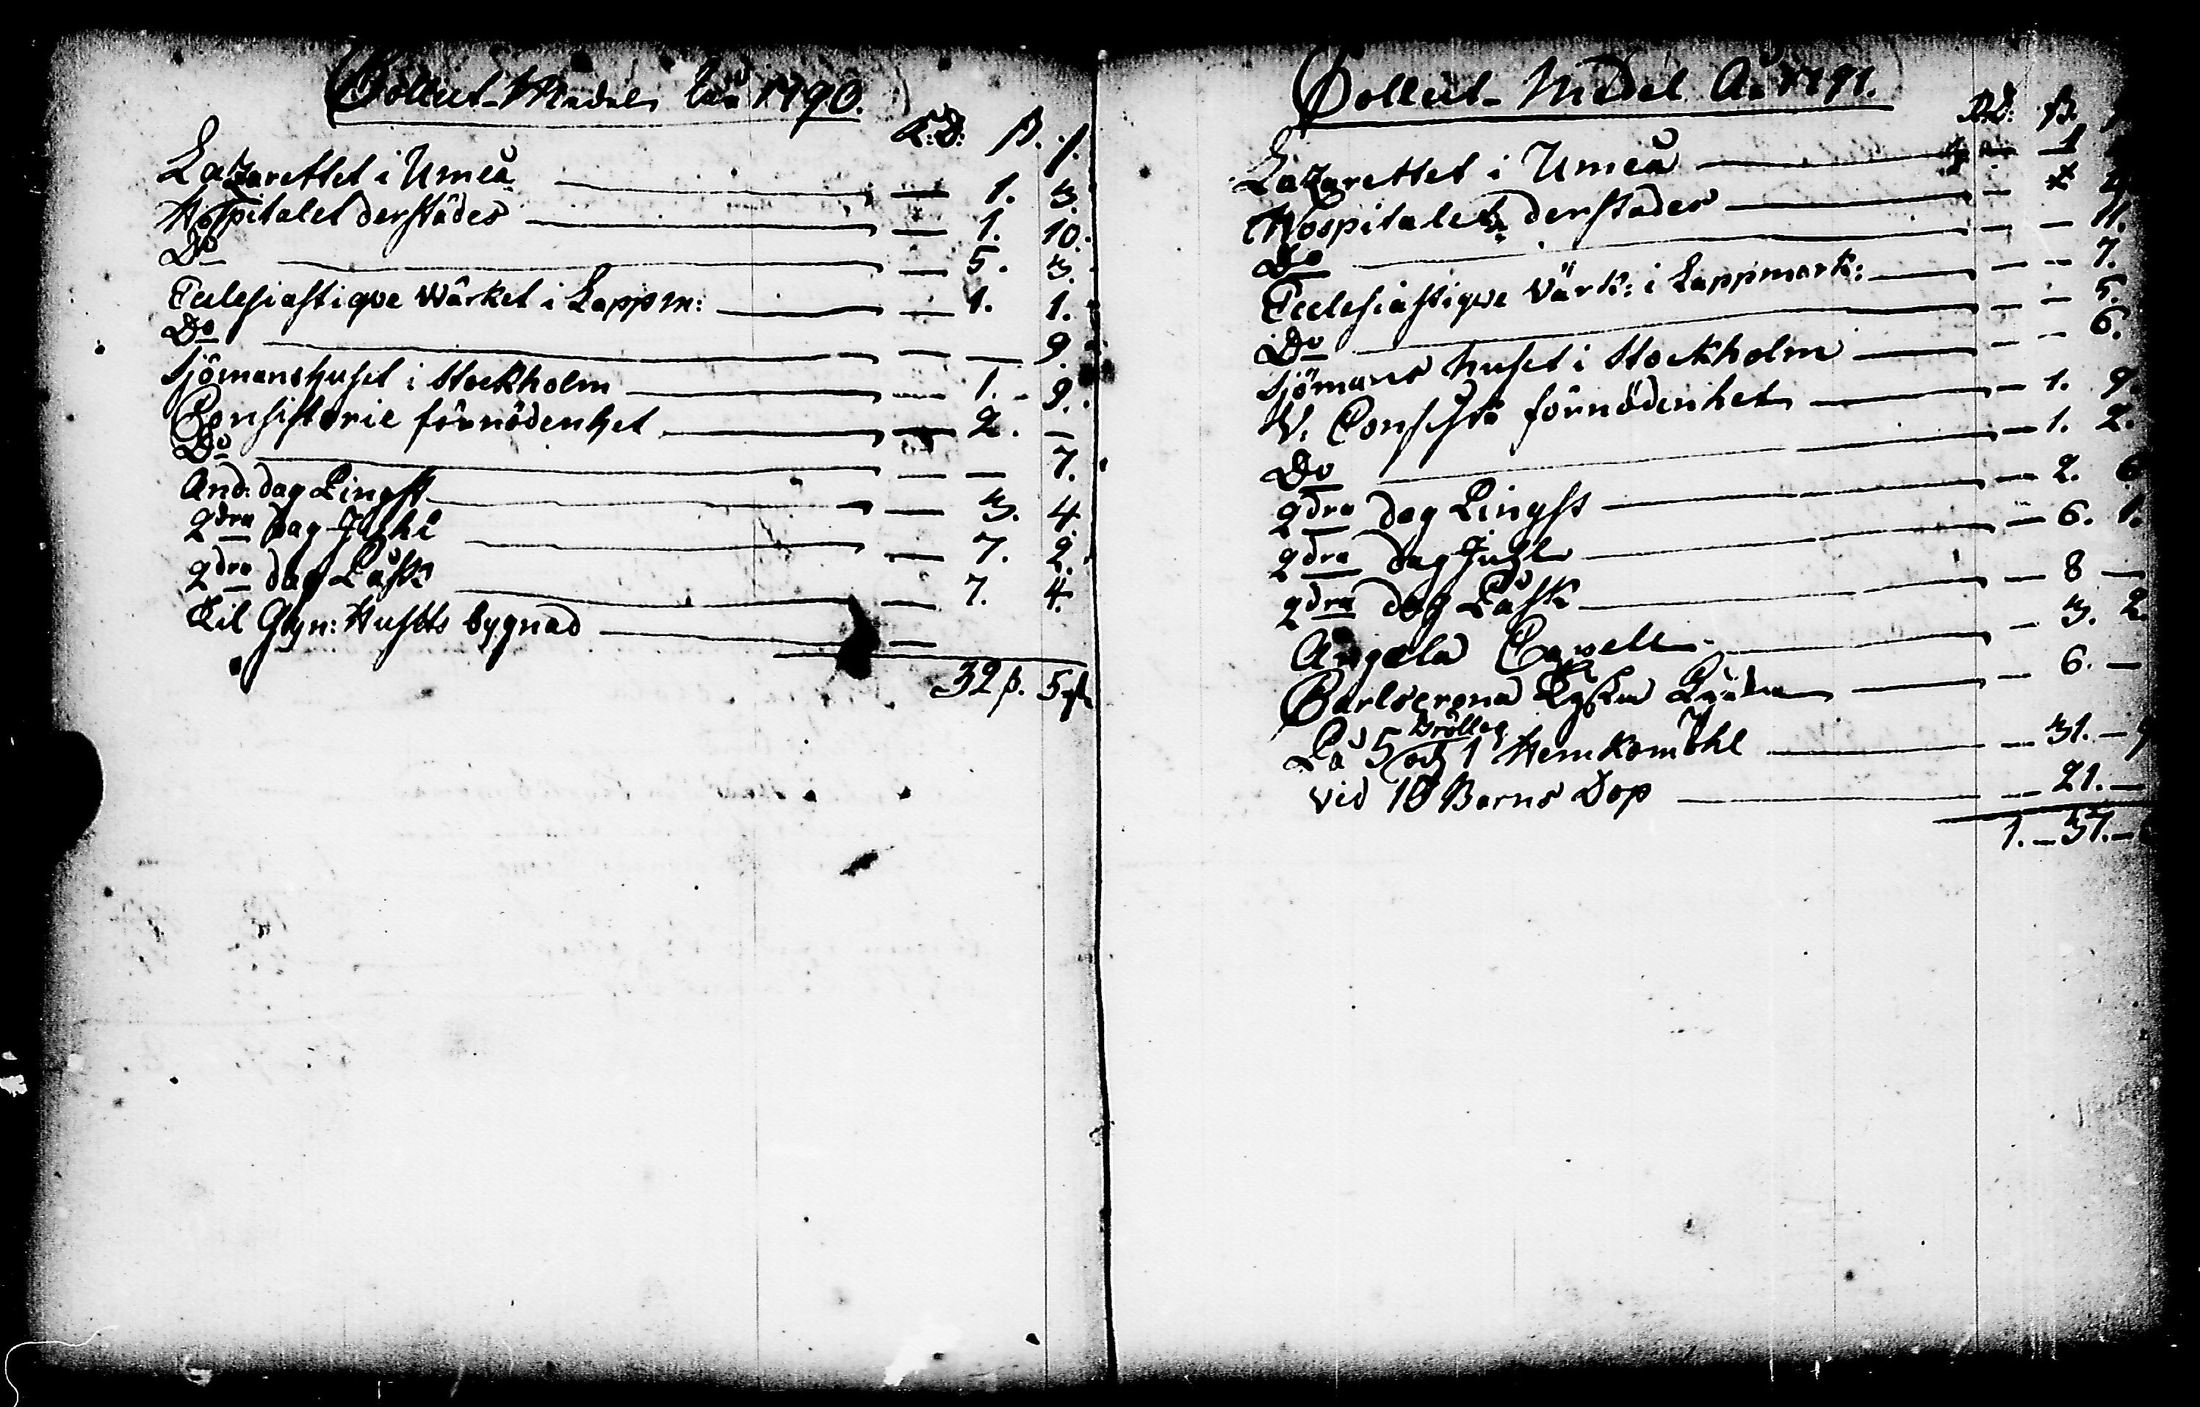 Collect-Medel 1790.
R:D: ß. /.
Lazarettet i Umeå — 1. 3.
Hospitalet derstädes — 1. 10.
Do — 5. 3.
Ecclesiastiqve Wärket i Lappm: — 1. 1.
Do — — 9.
Sjömanshuset i Stockholm — 1. 9.
Consistorie förnödenhet — 2. —
Do — — 7.
And: dag Pingst — 3. 4.
2dra dag Juhl — 7. 2.
2dra dag Påsk — 7. 4.
Til Gyn: Husets bygnad —
32 ß. 5
Collect-Medel Ao 1791.
RD: ß.
Lazarettet i Umeå — 1
Hospitalet derstädes —
Do — 11.
Ecclesiastiqve Värk: i Lappmark: — 7.
Do — 5.
Sjömans huset i Stockholm — 6.
V. Consist: förnödenhet — 1. 9
Do — 1. 2.
2dra dag Pingst — 2. 6
2dra dag Juhl — 6. 1.
2dra dag Påsk — 8 —
Angela Capell — 3. 2
Carlscrona — 6. —
Bröllop
På 5 och 1 Hemkomöhl — 31. —
vid 10 Barns Dop — 21. —
1. — 37. —